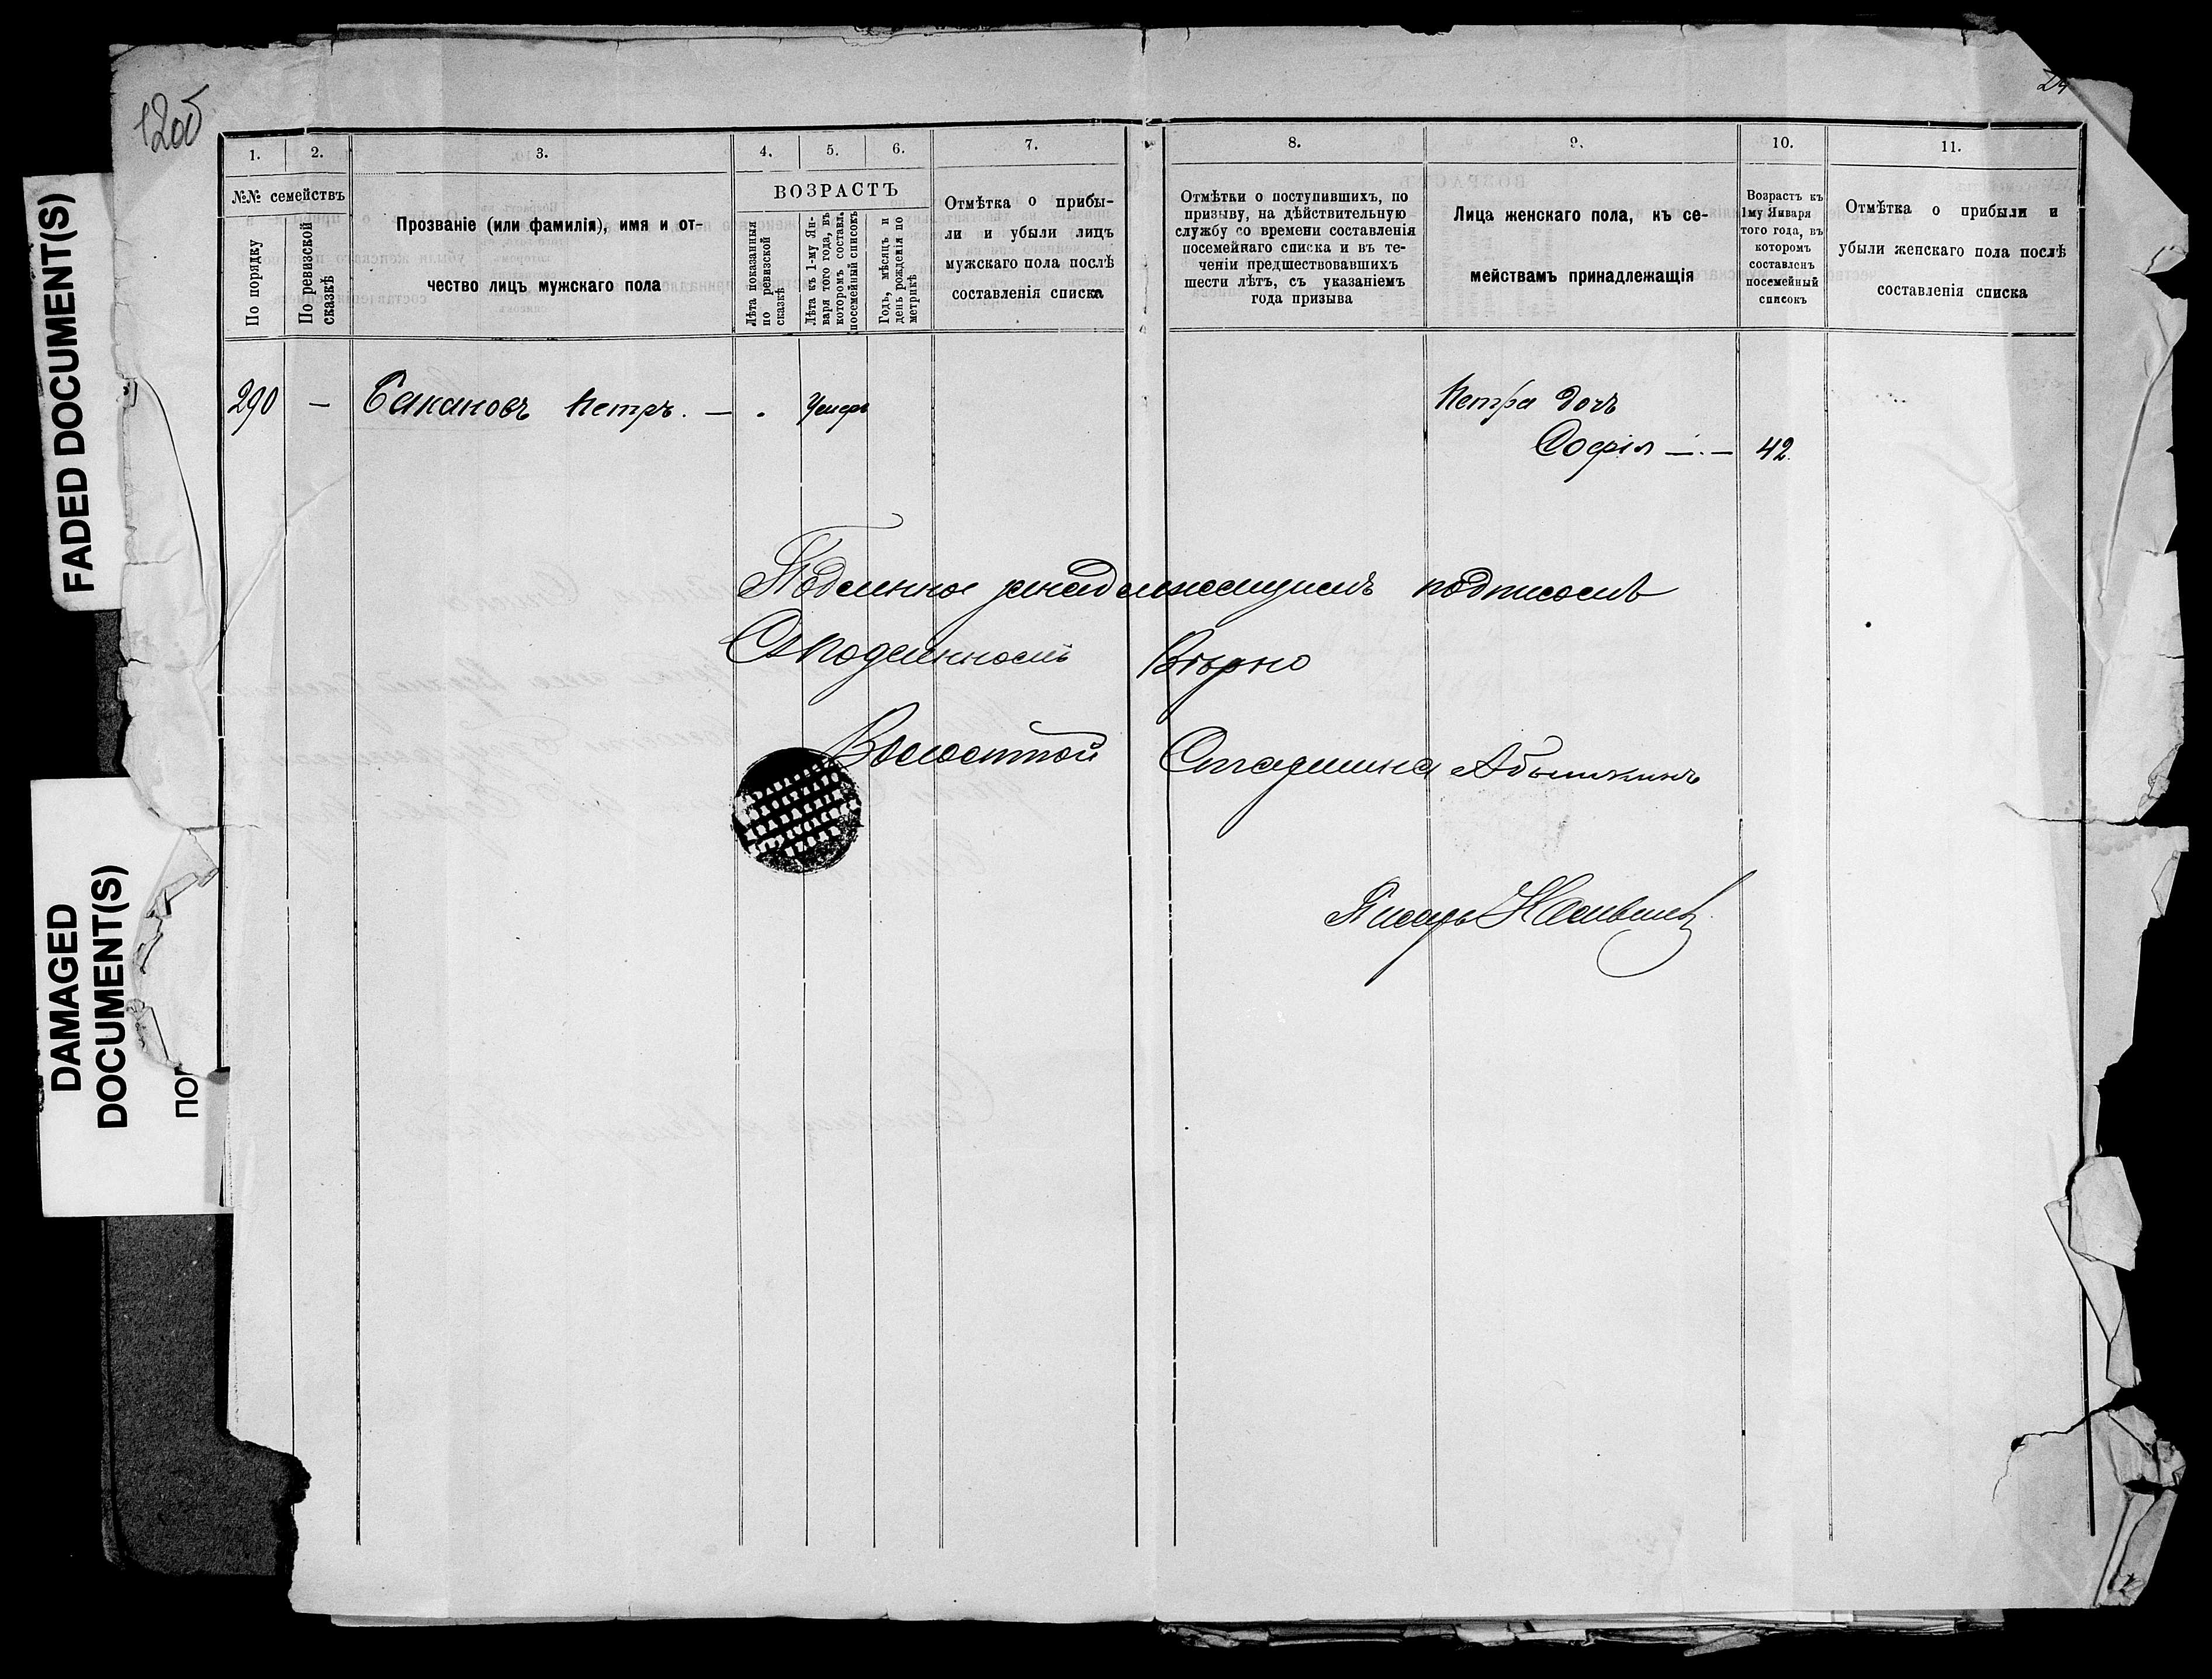 120б
24
FADED DOCUMENT(S)
DAMAGED
DOCUMENT(S)
ПО
1.
2.
3.
4.
5.
6.
7.
8.
9.
10.
11.
№№ семействъ
По порядку
По ревизской
сказкѣ
Прозваніе (или фамилія), имя и от-
чество лицъ мужскаго пола
ВОЗРАСТЪ
Лѣта показанныя
по ревизской
сказкѣ
Лѣта къ 1-му Ян-
варя того года, въ
которомъ составл.
посемейный списокъ
Годъ, мѣсяцъ и
день рожденія по
метрикѣ
Отмѣтка о прибы-
ли и убыли лицъ
мужскаго пола послѣ
составленія списка
Отмѣтки о поступившихъ, по
призыву, на дѣйствительную
службу со времени составленія
посемейнаго списка и въ те-
ченіи предшествовавшихъ
шести лѣтъ, съ указаніемъ
года призыва
Лица женскаго пола, къ се-
мействамъ принадлежащія
Возрастъ къ
1му Января
того года, въ
которомъ
составленъ
посемейный
списокъ
Отмѣтка о прибыли и
убыли женскаго пола послѣ
составленія списка
290 — Бакановъ Петръ. — . Умеръ
Петра дочь
Софія —.— 42.
Подлинное за надлежащимъ подписомъ
Съ подлиннымъ Вѣрно
Волостной Старшина
Писарь